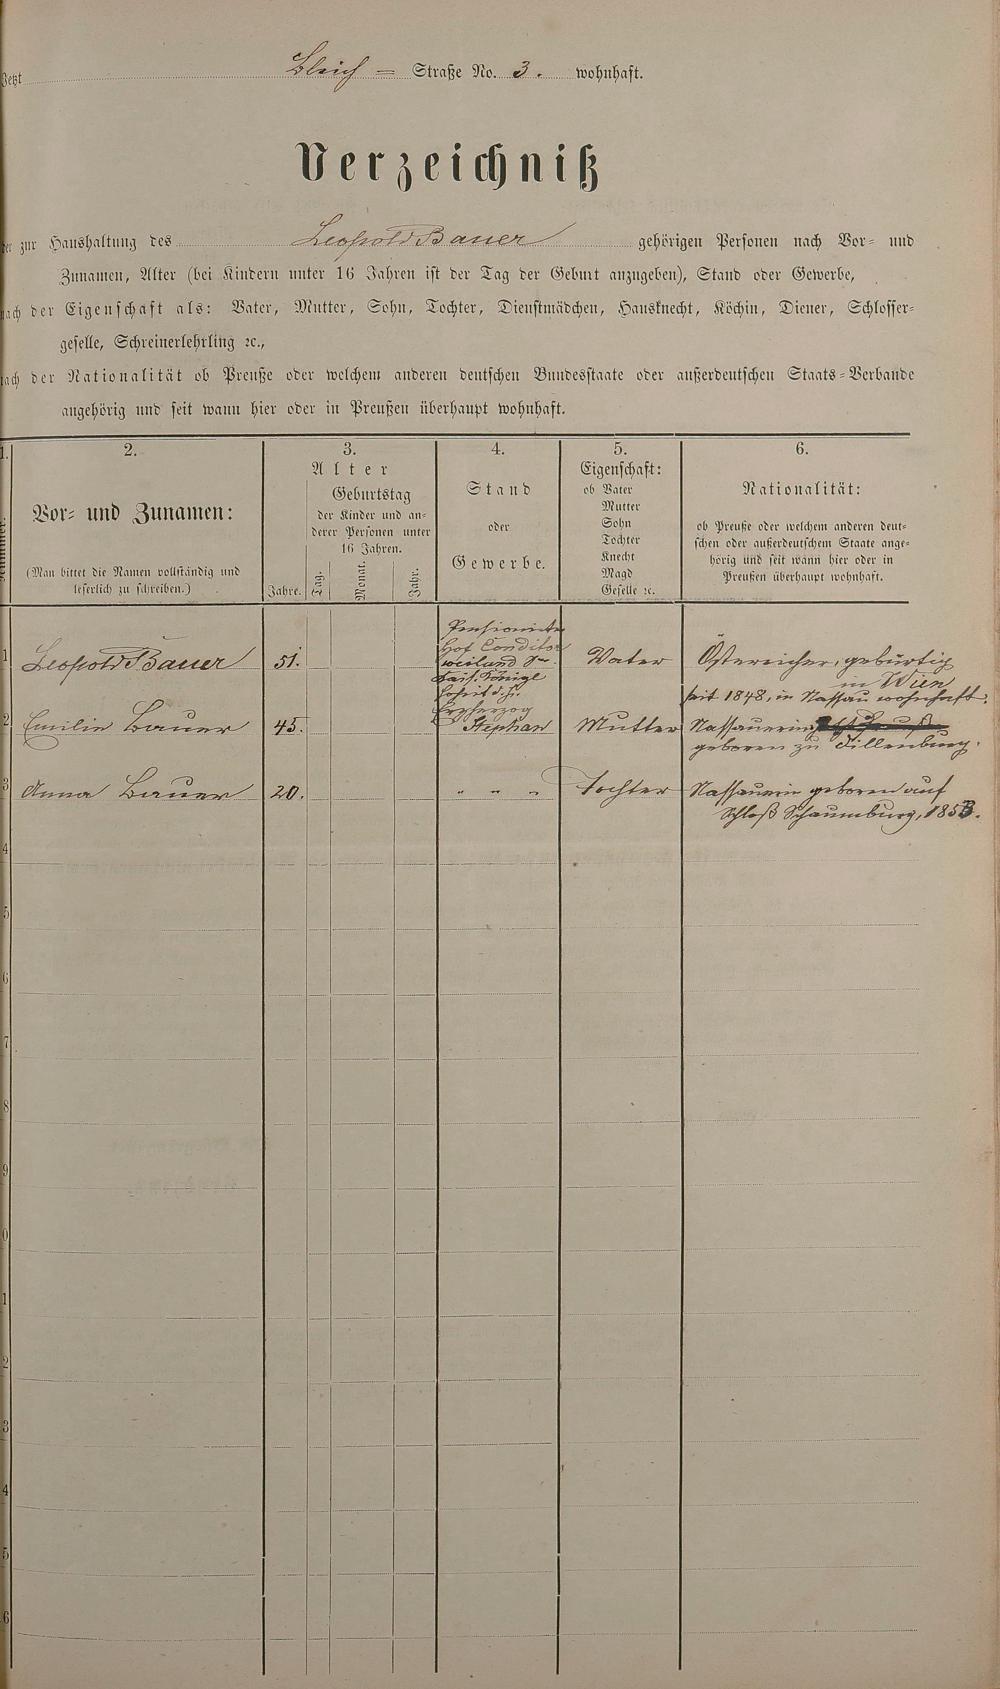 Jetzt Bleich = Straße No. 3. wohnhaft.
Verzeichniß
der zur Haushaltung des Leopold Bauer gehörigen Personen nach Vor- und
Zunamen, Alter (bei Kindern unter 16 Jahren ist der Tag der Geburt anzugeben), Stand oder Gewerbe,
nach der Eigenschaft als: Vater, Mutter, Sohn, Tochter, Dienstmädchen, Hausknecht, Köchin, Diener, Schlosser-
geselle, Schreinerlehrling ꝛc.,
nach der Nationalität ob Preuße oder welchem anderen deutschen Bundesstaate oder außerdeutschen Staats-Verbande
angehörig und seit wann hier oder in Preußen überhaupt wohnhaft.
1.
Nummer.
2.
Vor- und Zunamen:
(Man bittet die Namen vollständig und
leserlich zu schreiben.)
3.
Alter
Jahre.
Geburtstag
der Kinder und an-
derer Personen unter
16 Jahren.
Tag.
Monat.
Jahr.
4.
Stand
oder
Gewerbe.
5.
Eigenschaft:
ob Vater
Mutter
Sohn
Tochter
Knecht
Magd
Geselle ꝛc.
6.
Nationalität:
ob Preuße oder welchem anderen deut-
schen oder außerdeutschem Staate ange-
hörig und seit wann hier oder in
Preußen überhaupt wohnhaft.
1 Leopold Bauer 51.
Pensionirter
Hof Conditor
weiland Sr.
Kais. Königl
Hoheit d. H.
Erzherzog
Stephan
Vater
Östereicher, gebürtig
in Wien
seit 1848, in Nassau wohnhaft.
2 Emilie Bauer 45. Mutter Nassauerin
geboren zu Dillenburg.
3 Anna Bauer 20. " " " Tochter Nassauerin geboren auf
Schloß Schaumburg, 1853.
4
5
6
7
8
9
0
1
2
3
4
5
6